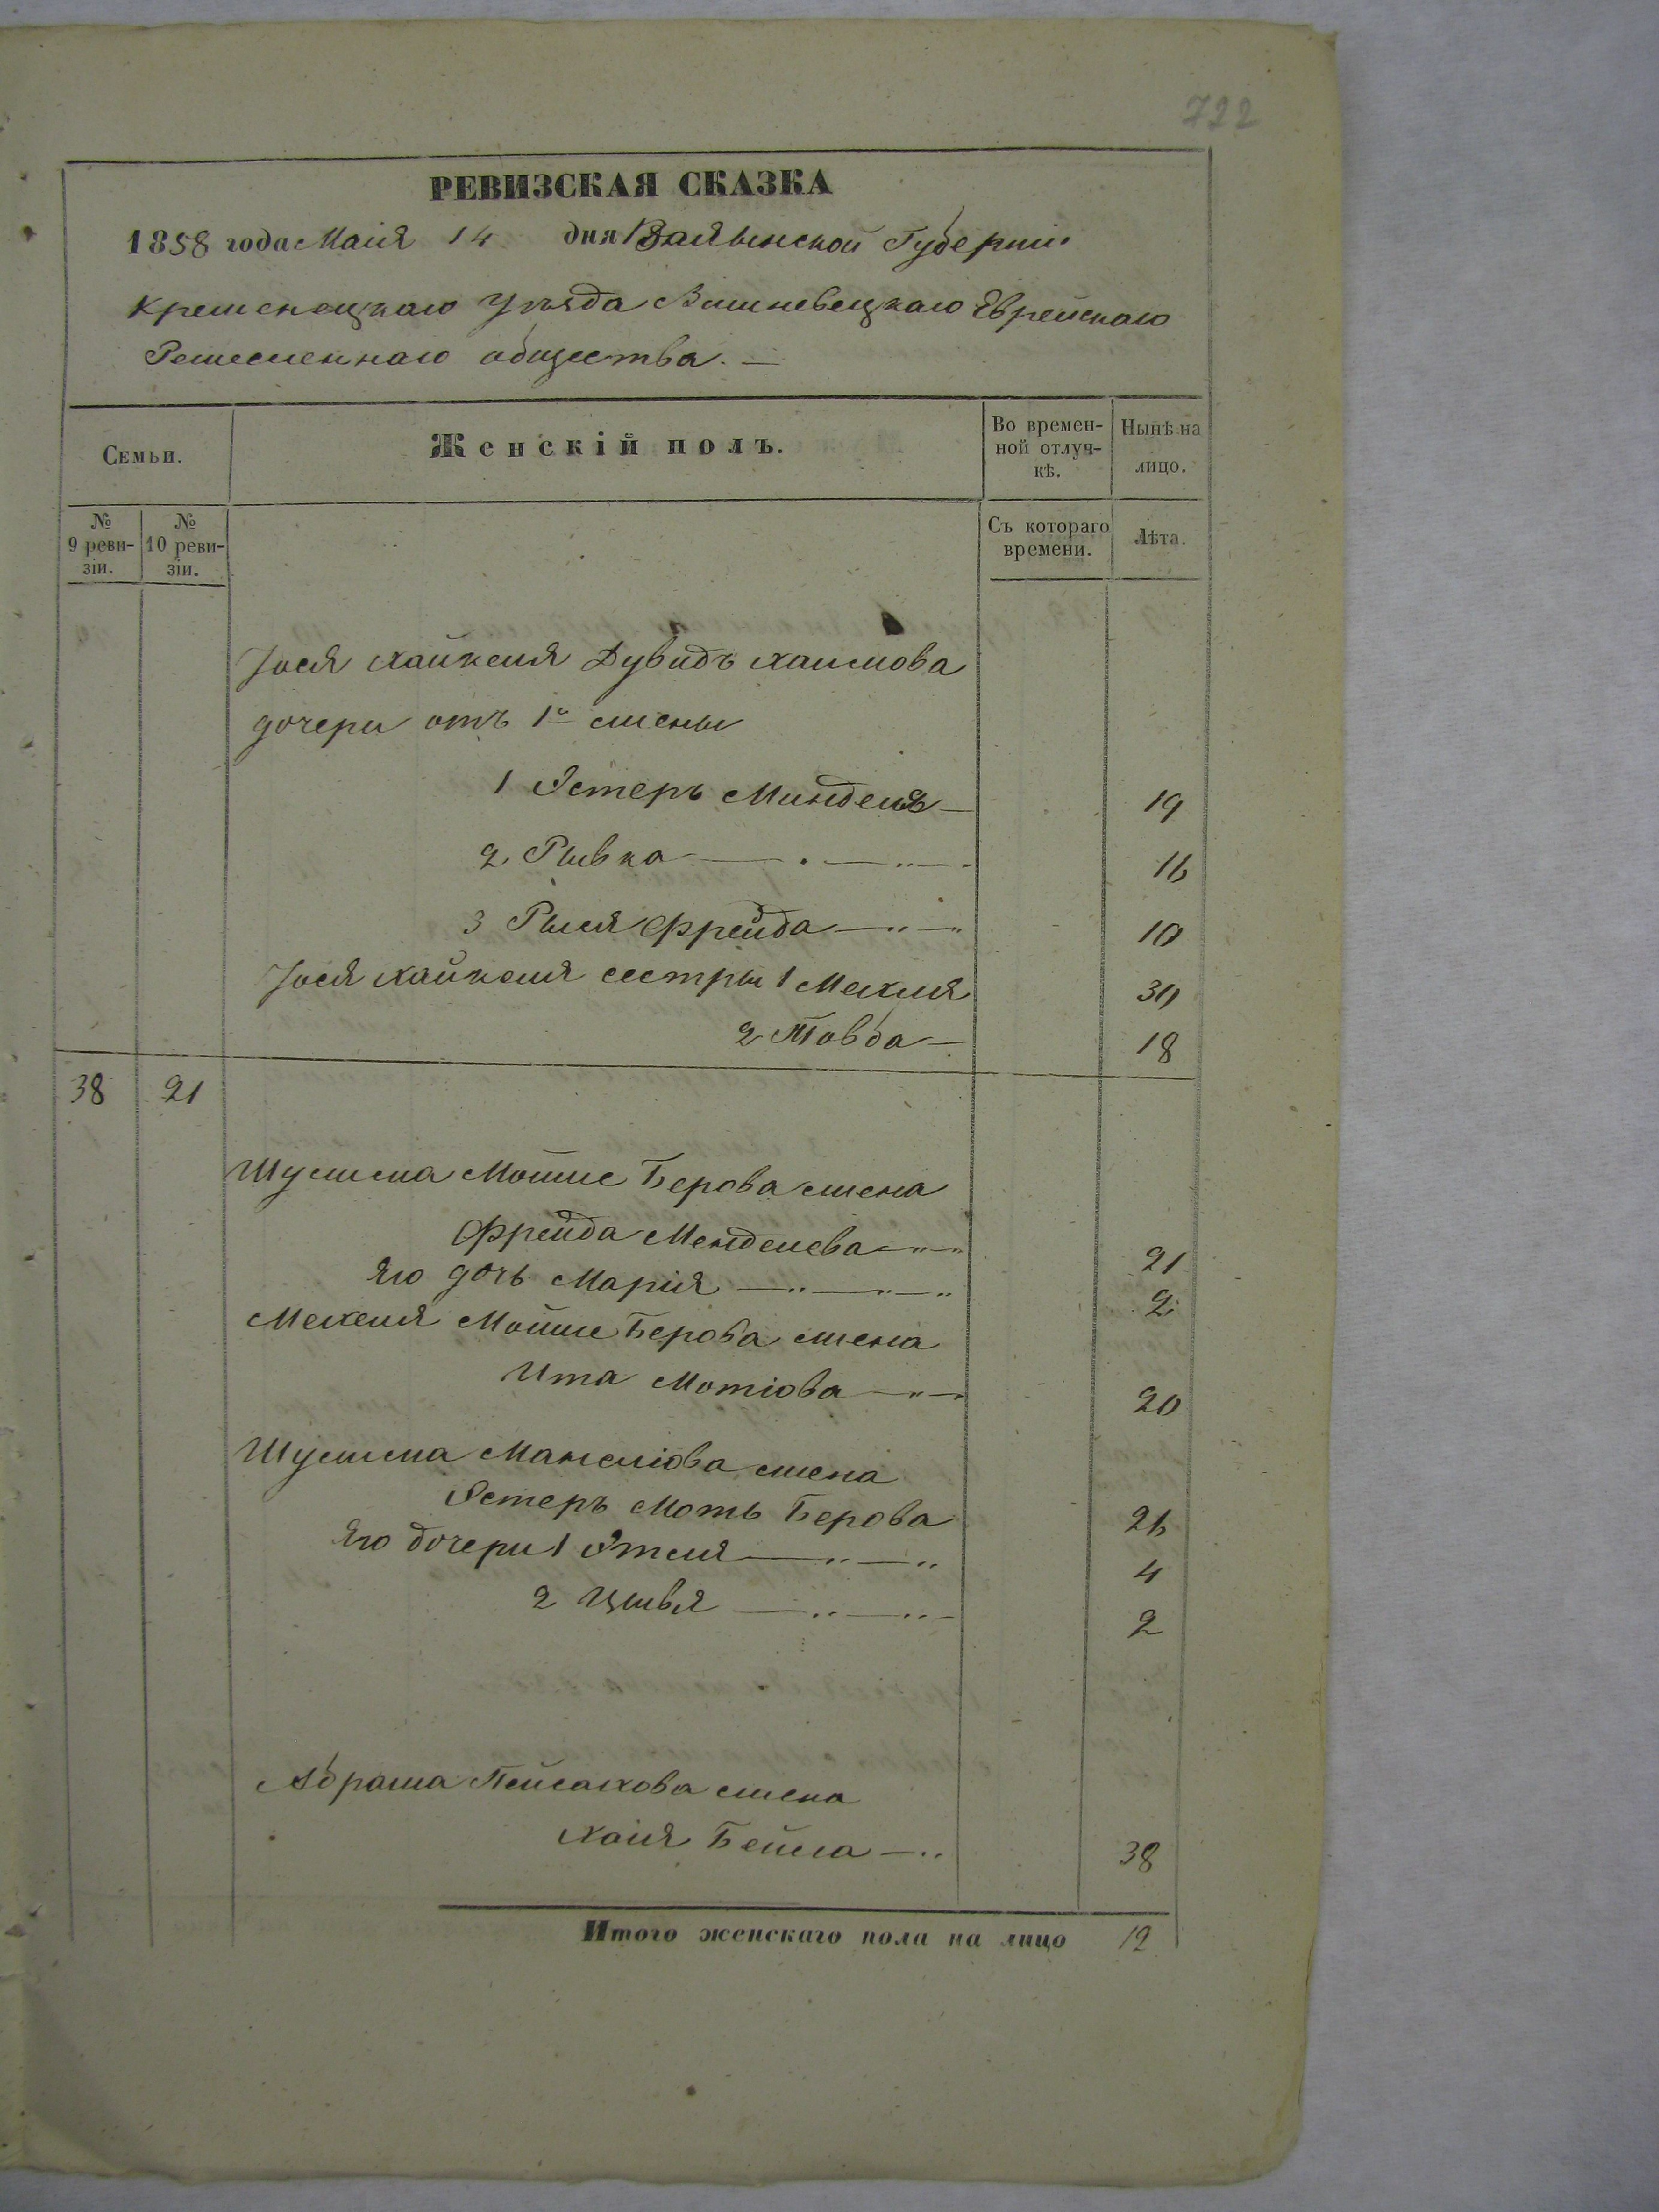 722
РЕВИЗСКАЯ СКАЗКА
1858 года Маія 14 дня Волынской Губерніи
Кременецкаго Уѣзда Вишневецкаго Еврейскаго
Ремесленнаго общества. —
Семьи.
Женскій полъ.
Во времен-
ной отлуч-
кѣ.
Нынѣ на
лицо.
№
9 реви-
зіи.
№
10 реви-
зіи.
Съ котораго
времени.
Лѣта.
Іося Хайкеля Дувидъ Хаимова
дочери отъ 1й жены
1 Эстеръ Миндель — 19
2 Рывка — 16
3 Рыся Фрейда — 10
Іося Хайкеля сестры 1 Мехля 30
2 Товба — 18
38 21
Шулима Мошие Берова жена
Фрейда Менделева — 21
Его дочь Марія — 2
Мехеля Мошие Берова жена
Ита Мотіова — 20
Шулима жена
Эстеръ Моть Берова 26
Его дочери 1 Этля — 4
2 Цывья — 2
Абрама Пейсахова жена
Хаія Бейла — 38
Итого женскаго пола на лицо 12